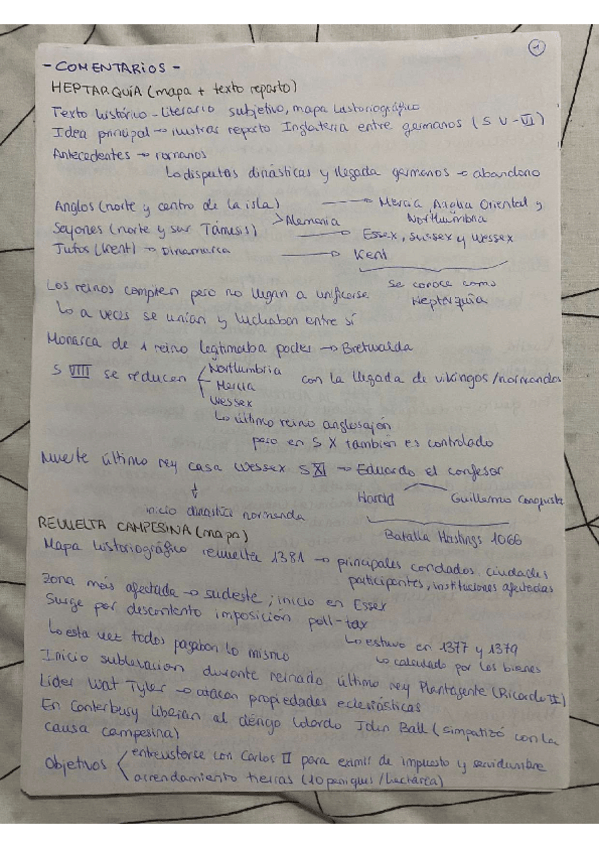 1
- COMENTARIOS -
HEPTARQUÍA (mapa + texto reparto)
Texto histórico-literario subjetivo, mapa historiográfico
Idea principal → muestras reparto Inglaterra entre germanos (S V-VI)
Antecedentes → romanos
↳ disputas dinásticas y llegada germanos → abandono
Anglos (norte y centro de la isla) → Mercia, Anglia Oriental y
Northumbria
Sajones (norte y sur Támesis) > Alemania → Essex, Sussex y Wessex
Jutos (Kent) → Dinamarca → Kent
Se conoce como
Heptarquía
Los reinos compiten pero no llegan a unificarse
↳ a veces se unían y luchaban entre sí
Monarca de 1 reino legitimaba poder → Bretwalda
S VIII se reducen
Northumbria
Mercia
Wessex
con la llegada de vikingos/normandos
↳ último reino anglosajón
pero en S X también es controlado
Muerte último rey casa Wessex S XI → Eduardo el confesor
↓
inicio dinastía normanda
Harold
Guillermo Conquista
Batalla Hastings 1066
REVUELTA CAMPESINA (mapa)
Mapa historiográfico revuelta 1381 → principales condados, ciudades
participantes, instituciones afectadas
Zona más afectada → sudeste; inicio en Essex
Surge por descontento imposición poll-tax
↳ esta vez todos pagaban lo mismo
↳ estuvo en 1377 y 1379
↳ calculado por los bienes
Inicio sublevación durante reinado último rey Plantagenet (Ricardo II)
Líder Wat Tyler → atacan propiedades eclesiásticas
En Canterbury liberan al clérigo lolardo John Ball (simpatizó con la
causa campesina)
Objetivos
entrevistarse con Carlos II para eximir de impuesto y servidumbre
arrendamiento tierras (10 peniques/hectárea)